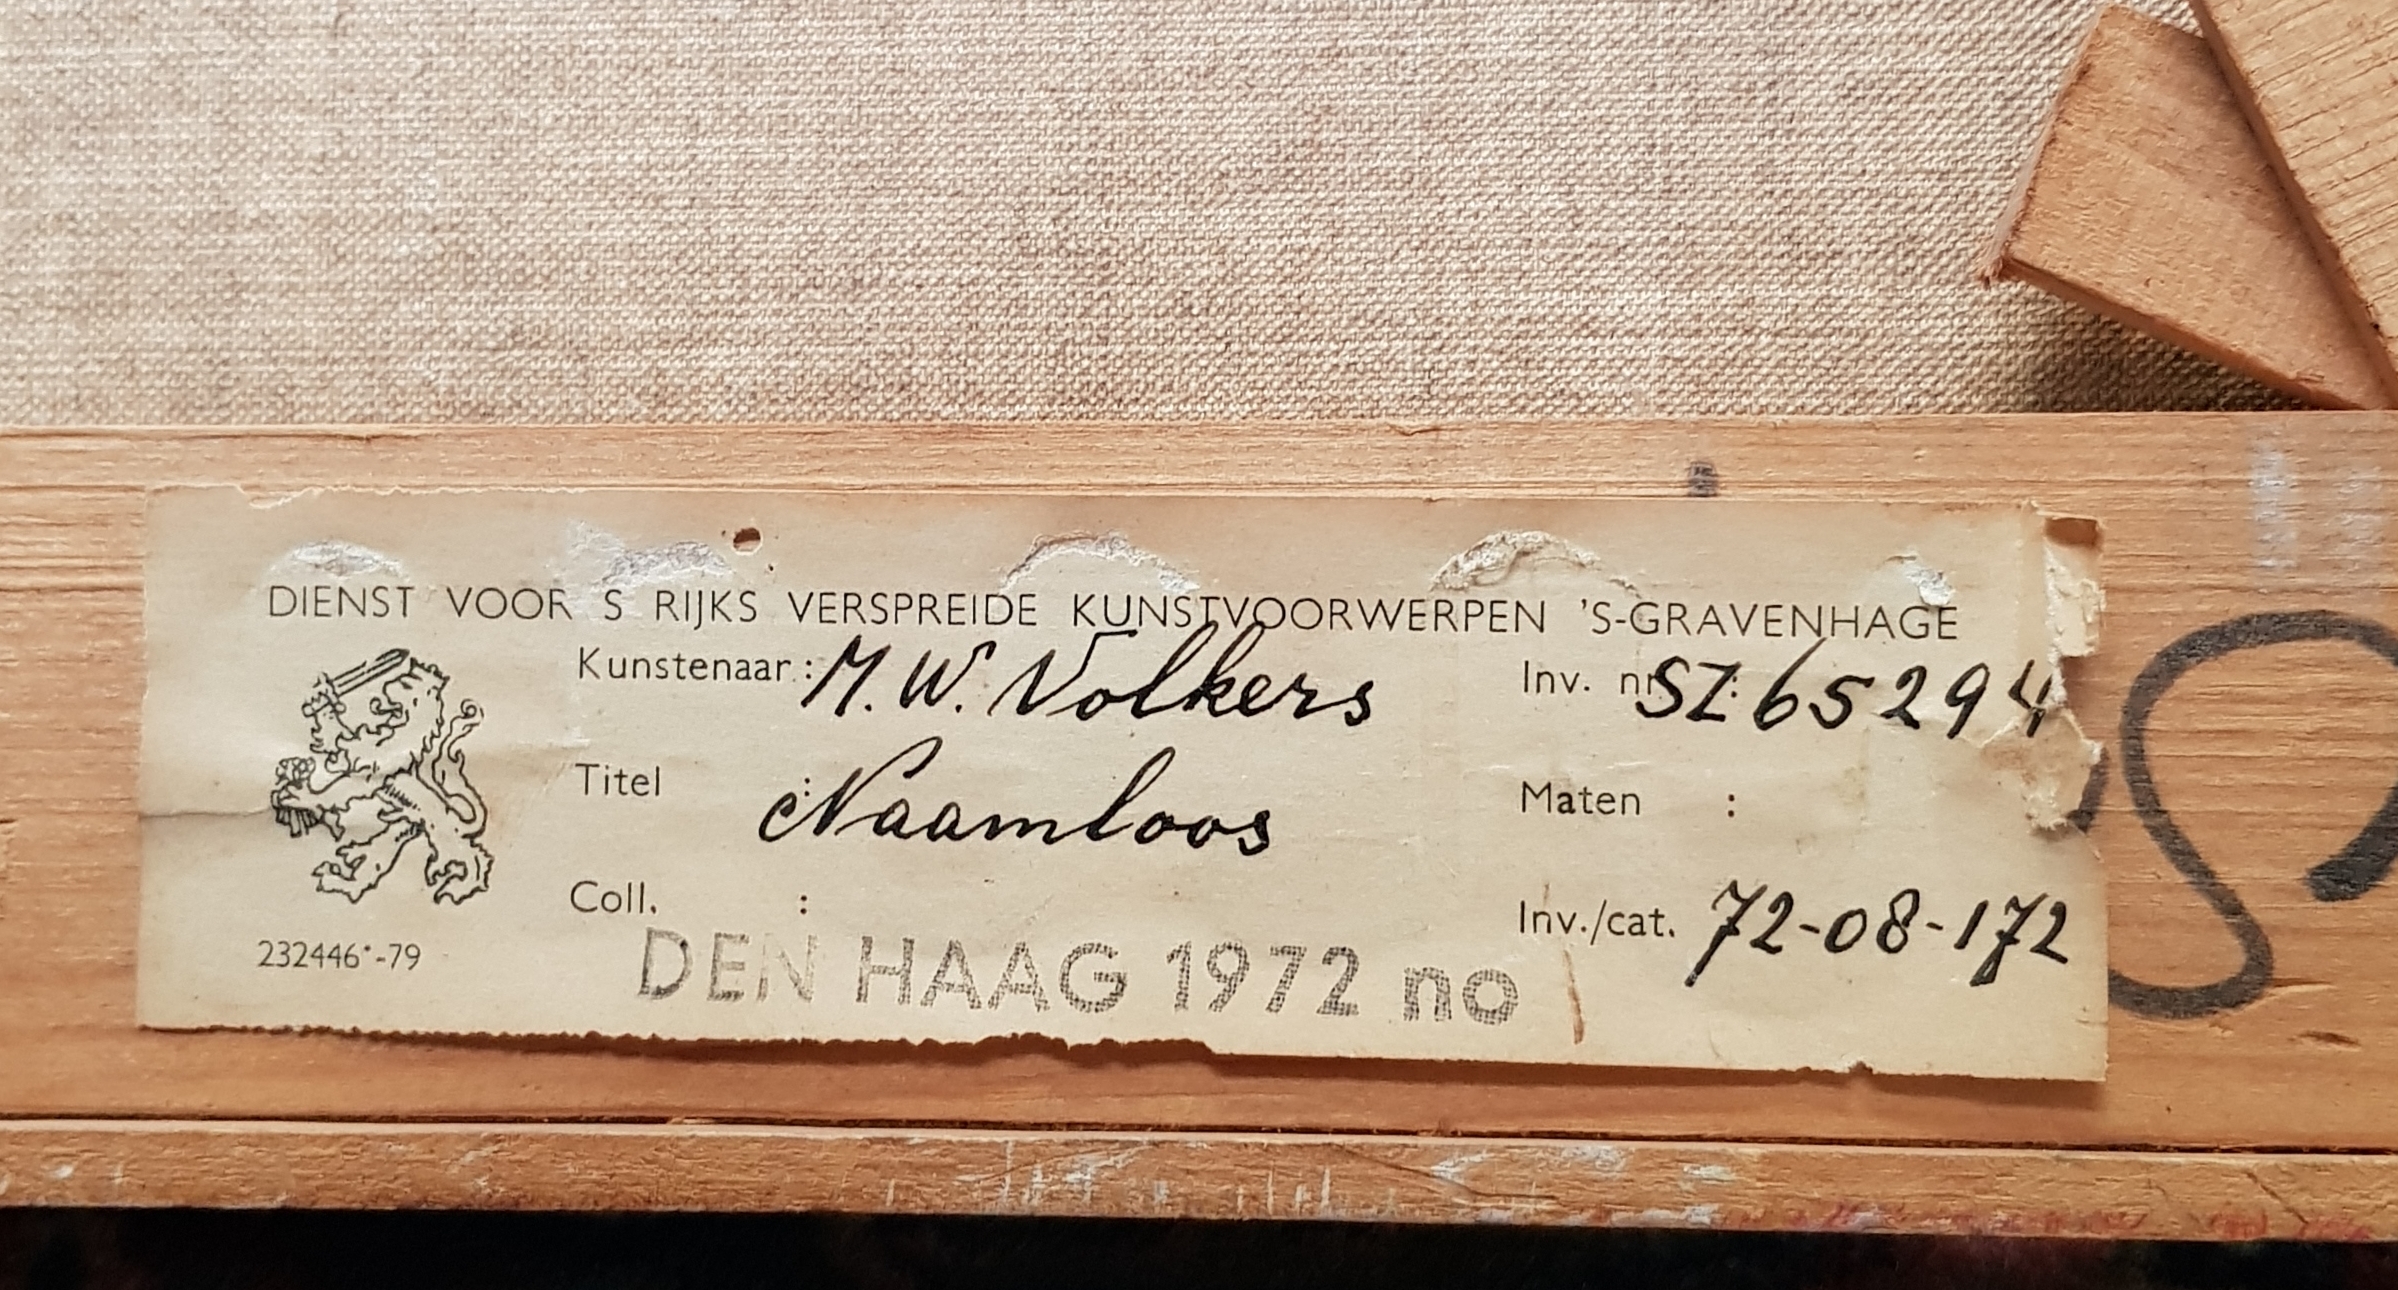 DIENST VOOR S RIJKS VERSPREIDE KUNSTVOORWERPEN 'S-GRAVENHAGE
Kunstenaar : M. W. Volkers Inv. nr SZ: 65294
Titel : Naamloos Maten :
Coll. : Inv./cat. 72-08-172
232446*-79 DEN HAAG 1972 no
S